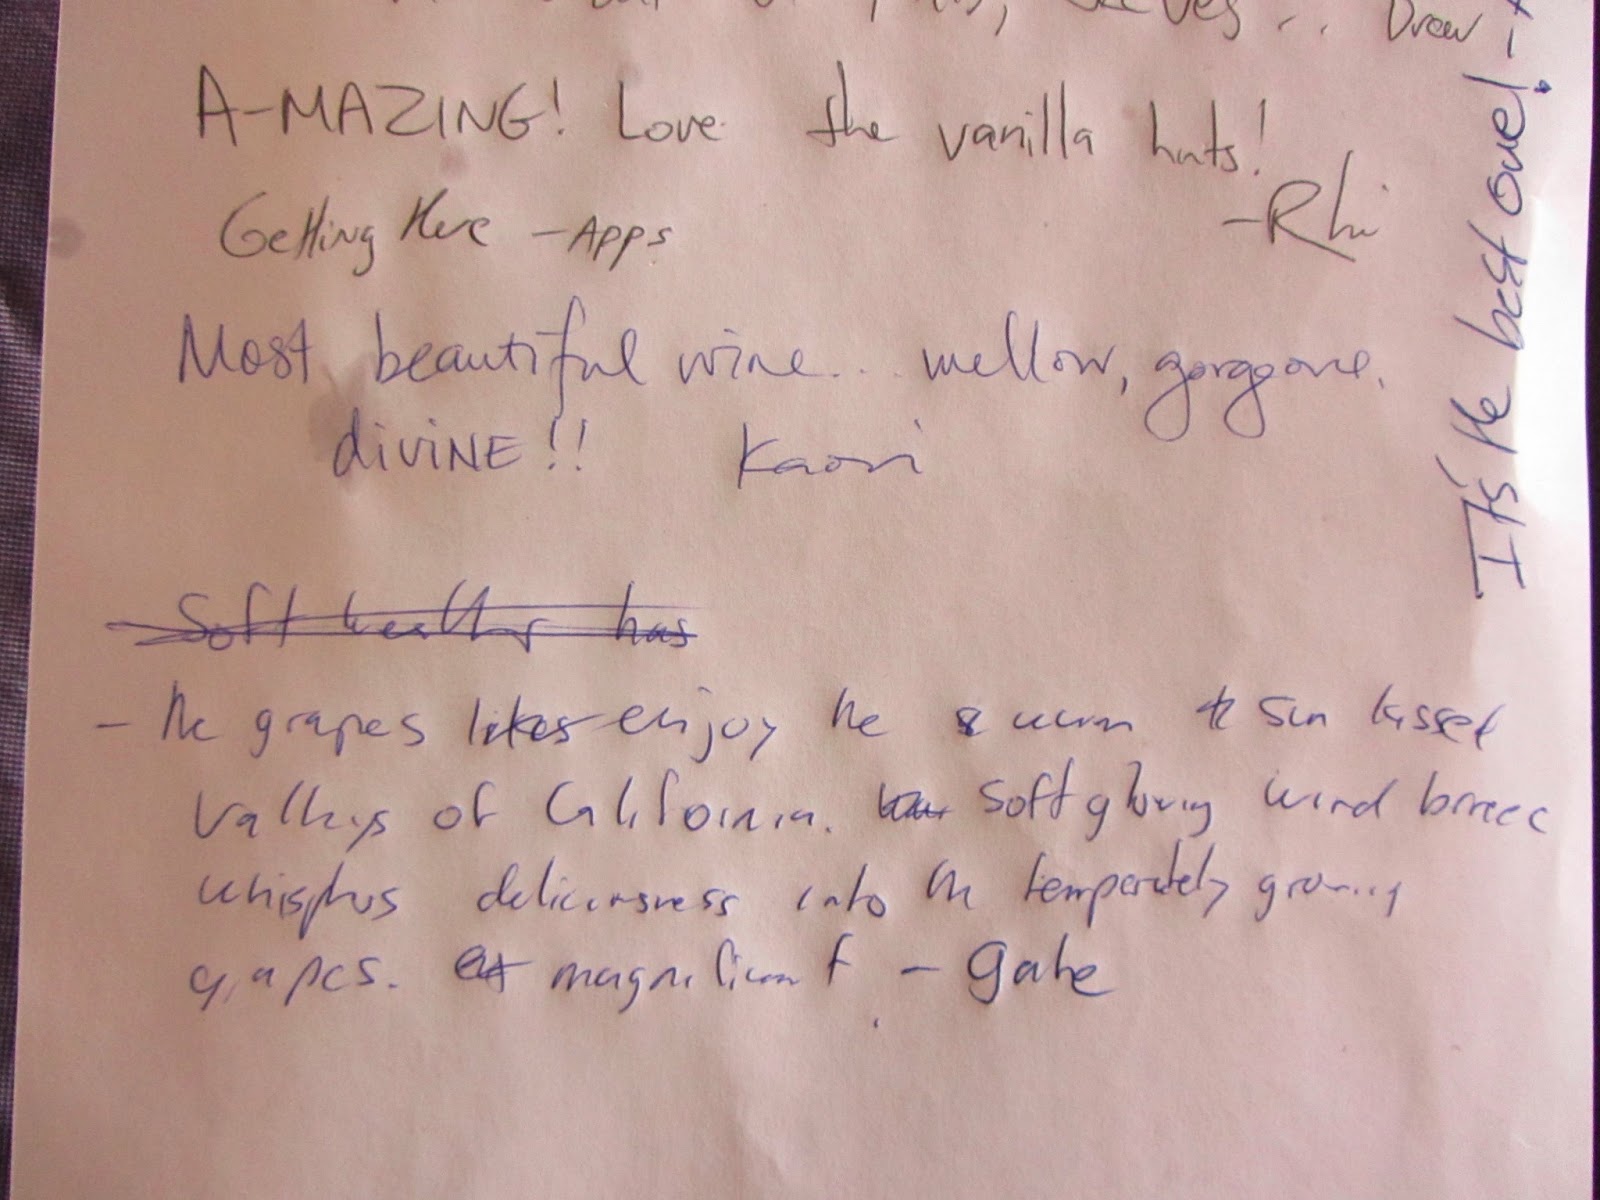 Drew -
A-MAZING! Love the vanilla hints!
-Rhi
Getting there -Apps
Most beautiful wine... mellow, gorgeous,
divine!! Kaori
Soft has
- the grapes likes enjoy the warm sun kissed
valleys of California. soft glowing wind breeze
whispers deliciousness into the temperately growing
grapes. magnificant - Gabe
It's the best one! -